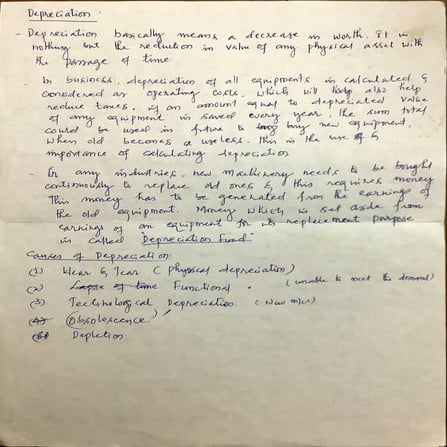 Depreciation
- Depreciation basically means a decrease in worth. It is
nothing but the reduction in value of any physical asset with
the passage of time
In business, depreciation of all equipments is calculated &
considered as operating costs, which will help also help
reduce taxes. if an amount equal to depreciated value
of any equipment is saved every year, the sum total
could be used in future to buy new equipment,
when old becomes a useless. This is the use & 
importance of calculating depreciation
In any industries, new machinery needs to be bought
continuously to replace old ones & this requires money
This money has to be generated from the earnings of
the old equipment. Money which is set aside from
earnings of an equipment for its replacement purpose
is called Depreciation Fund
Causes of Depreciation:
(1) Wear & Tear (Physical depreciation)
(2) Lapse of time Functional . (unable to meet the demand)
(3) Technological Depreciation. (New m/c)
(4) Obsolescence
Depletion.